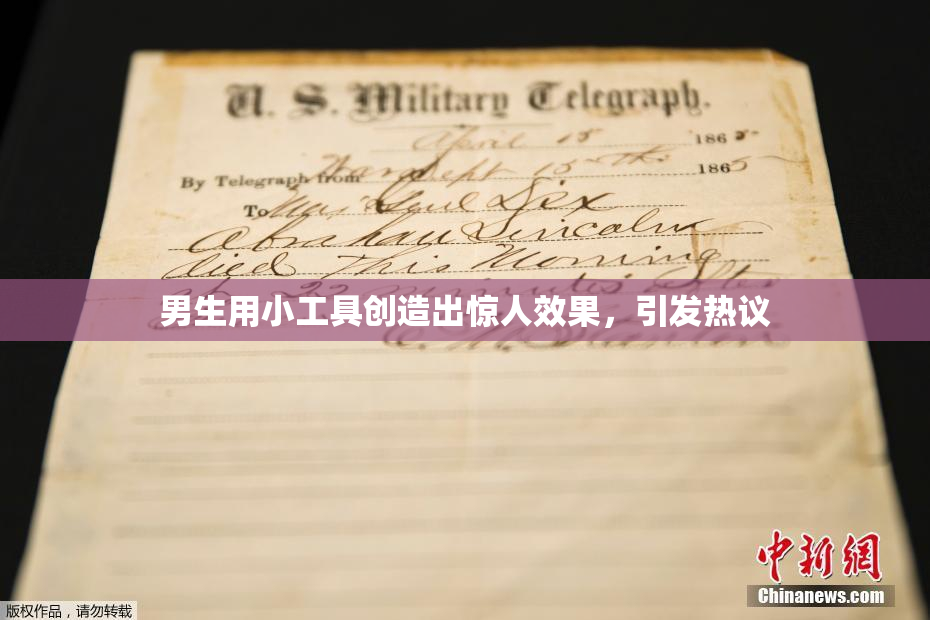 U. S. Military Telegraph.
April 15 1865
By Telegraph from War Dept 15th 1865
To Maj Genl Dix
Abraham Lincoln
died This Morning
at 22 minutes after
男生用小工具创造出惊人效果，引发热议
E. M. Stanton
中新网
Chinanews.com
版权作品，请勿转载